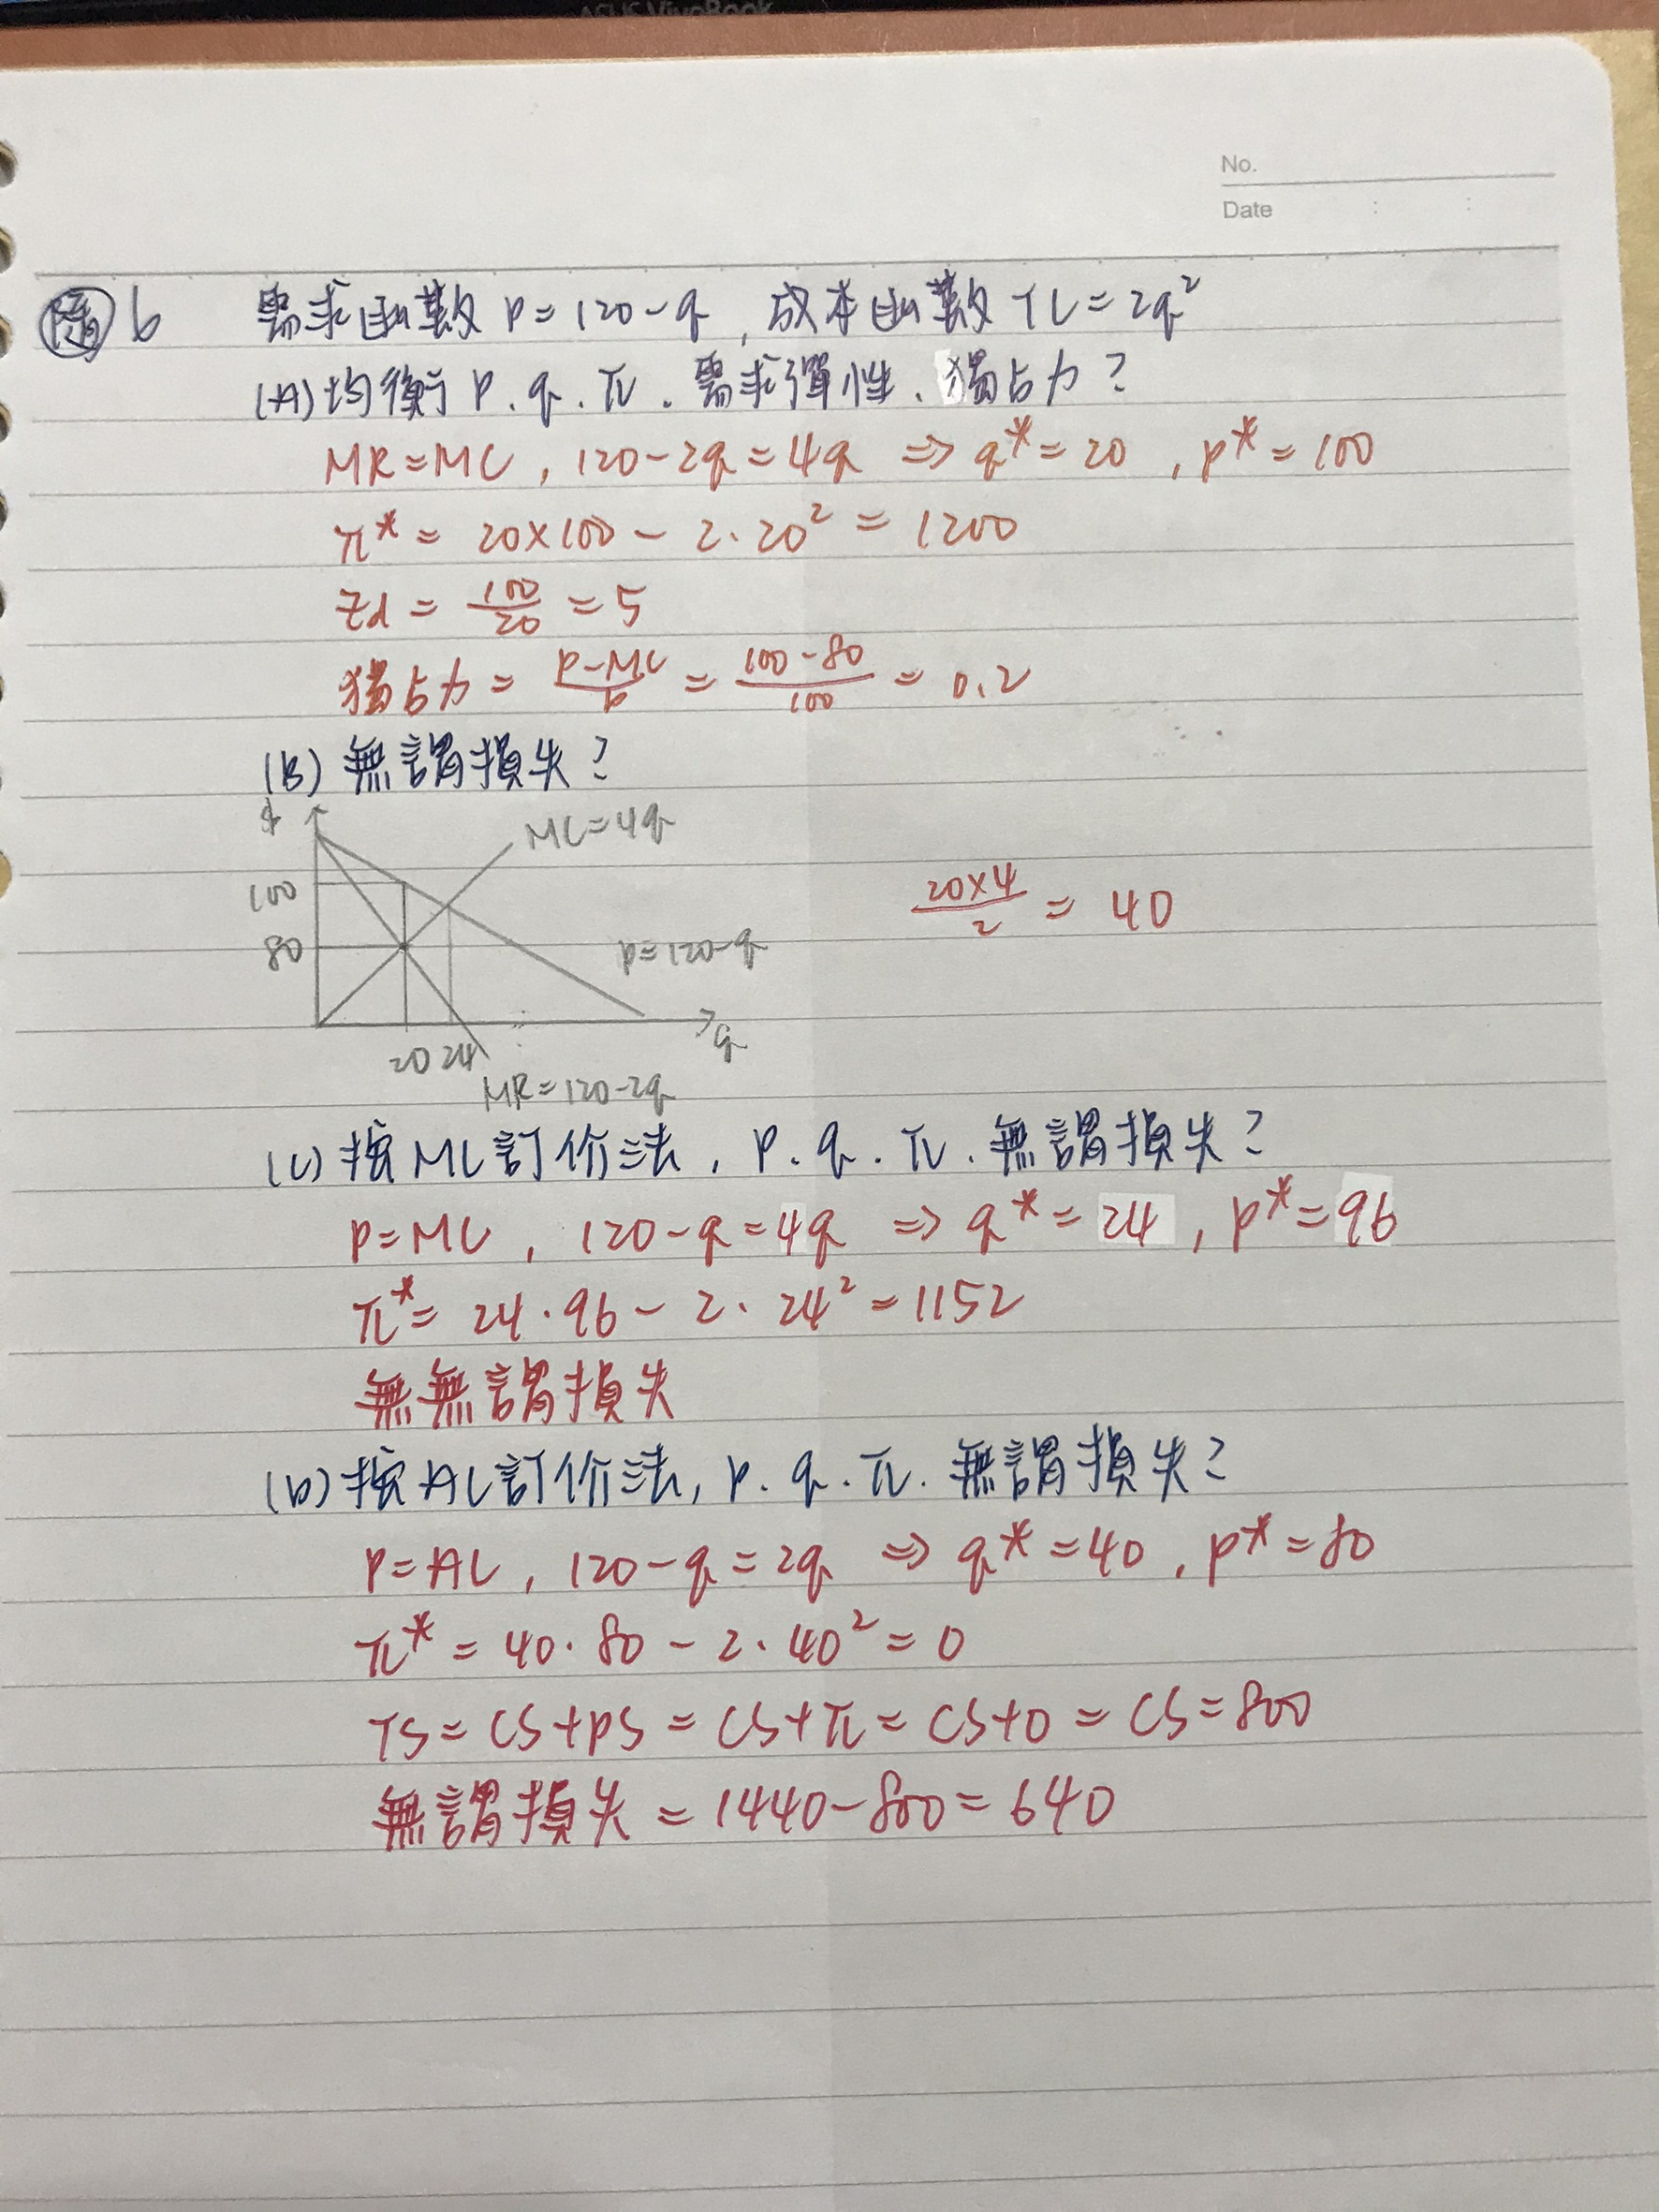 ASUS VivoBook
No.
Date : :
隨 6 需求函數 P=120-q, 成本函數 TC=2q²
(A) 均衡 P.q.π.需求彈性、獨占力?
MR=MC, 120-2q=4q ⇒ q*=20, p*=100
π* = 20×100 - 2·20² = 1200
εd = 100/20 = 5
獨占力 = P-MC/P = 100-80/100 = 0.2
(B) 無謂損失?
$
MC=4q
100
80
P=120-q
20×4/2 = 40
20 24
q
MR=120-2q
(C) 按MC訂价法, P.q.π.無謂損失?
P=MC, 120-q=4q ⇒ q*=24, p*=96
π* = 24·96 - 2·24² = 1152
無無謂損失
(D) 按AC訂价法, P.q.π.無謂損失?
P=AC, 120-q=2q ⇒ q*=40, p*=80
π* = 40·80 - 2·40² = 0
TS = CS+PS = CS+π = CS+0 = CS = 800
無謂損失 = 1440-800 = 640